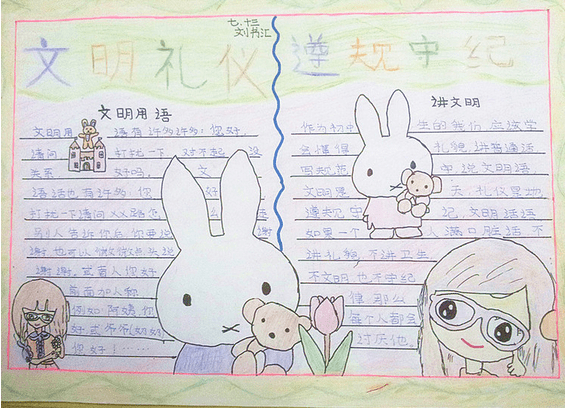 七.十三
刘书汇
文明礼仪 遵规守纪
文明用语
文明用语有许多许多：你好，
请问 打扰一下 对不起 没
关系 好吗 文
语话也有许多，你 好
打扰一下请问XX路怎 么
别人告诉你后你要说 谢
谢也可以微微点头说
谢谢.宾客人你好
前面加人称
例如 阿姨你
好或爷爷(奶奶)
你好！……
讲文明
作为初中 生的我们 应该学
会懂得 礼貌 讲普通话
同规范 中说文明语
文明是 天.礼仪是地
遵规守 纪，文明话语
如果一个 人满口脏话 不
讲礼貌 不讲卫生
不文明 也不守纪
律 那么
每个人都会
讨厌他.